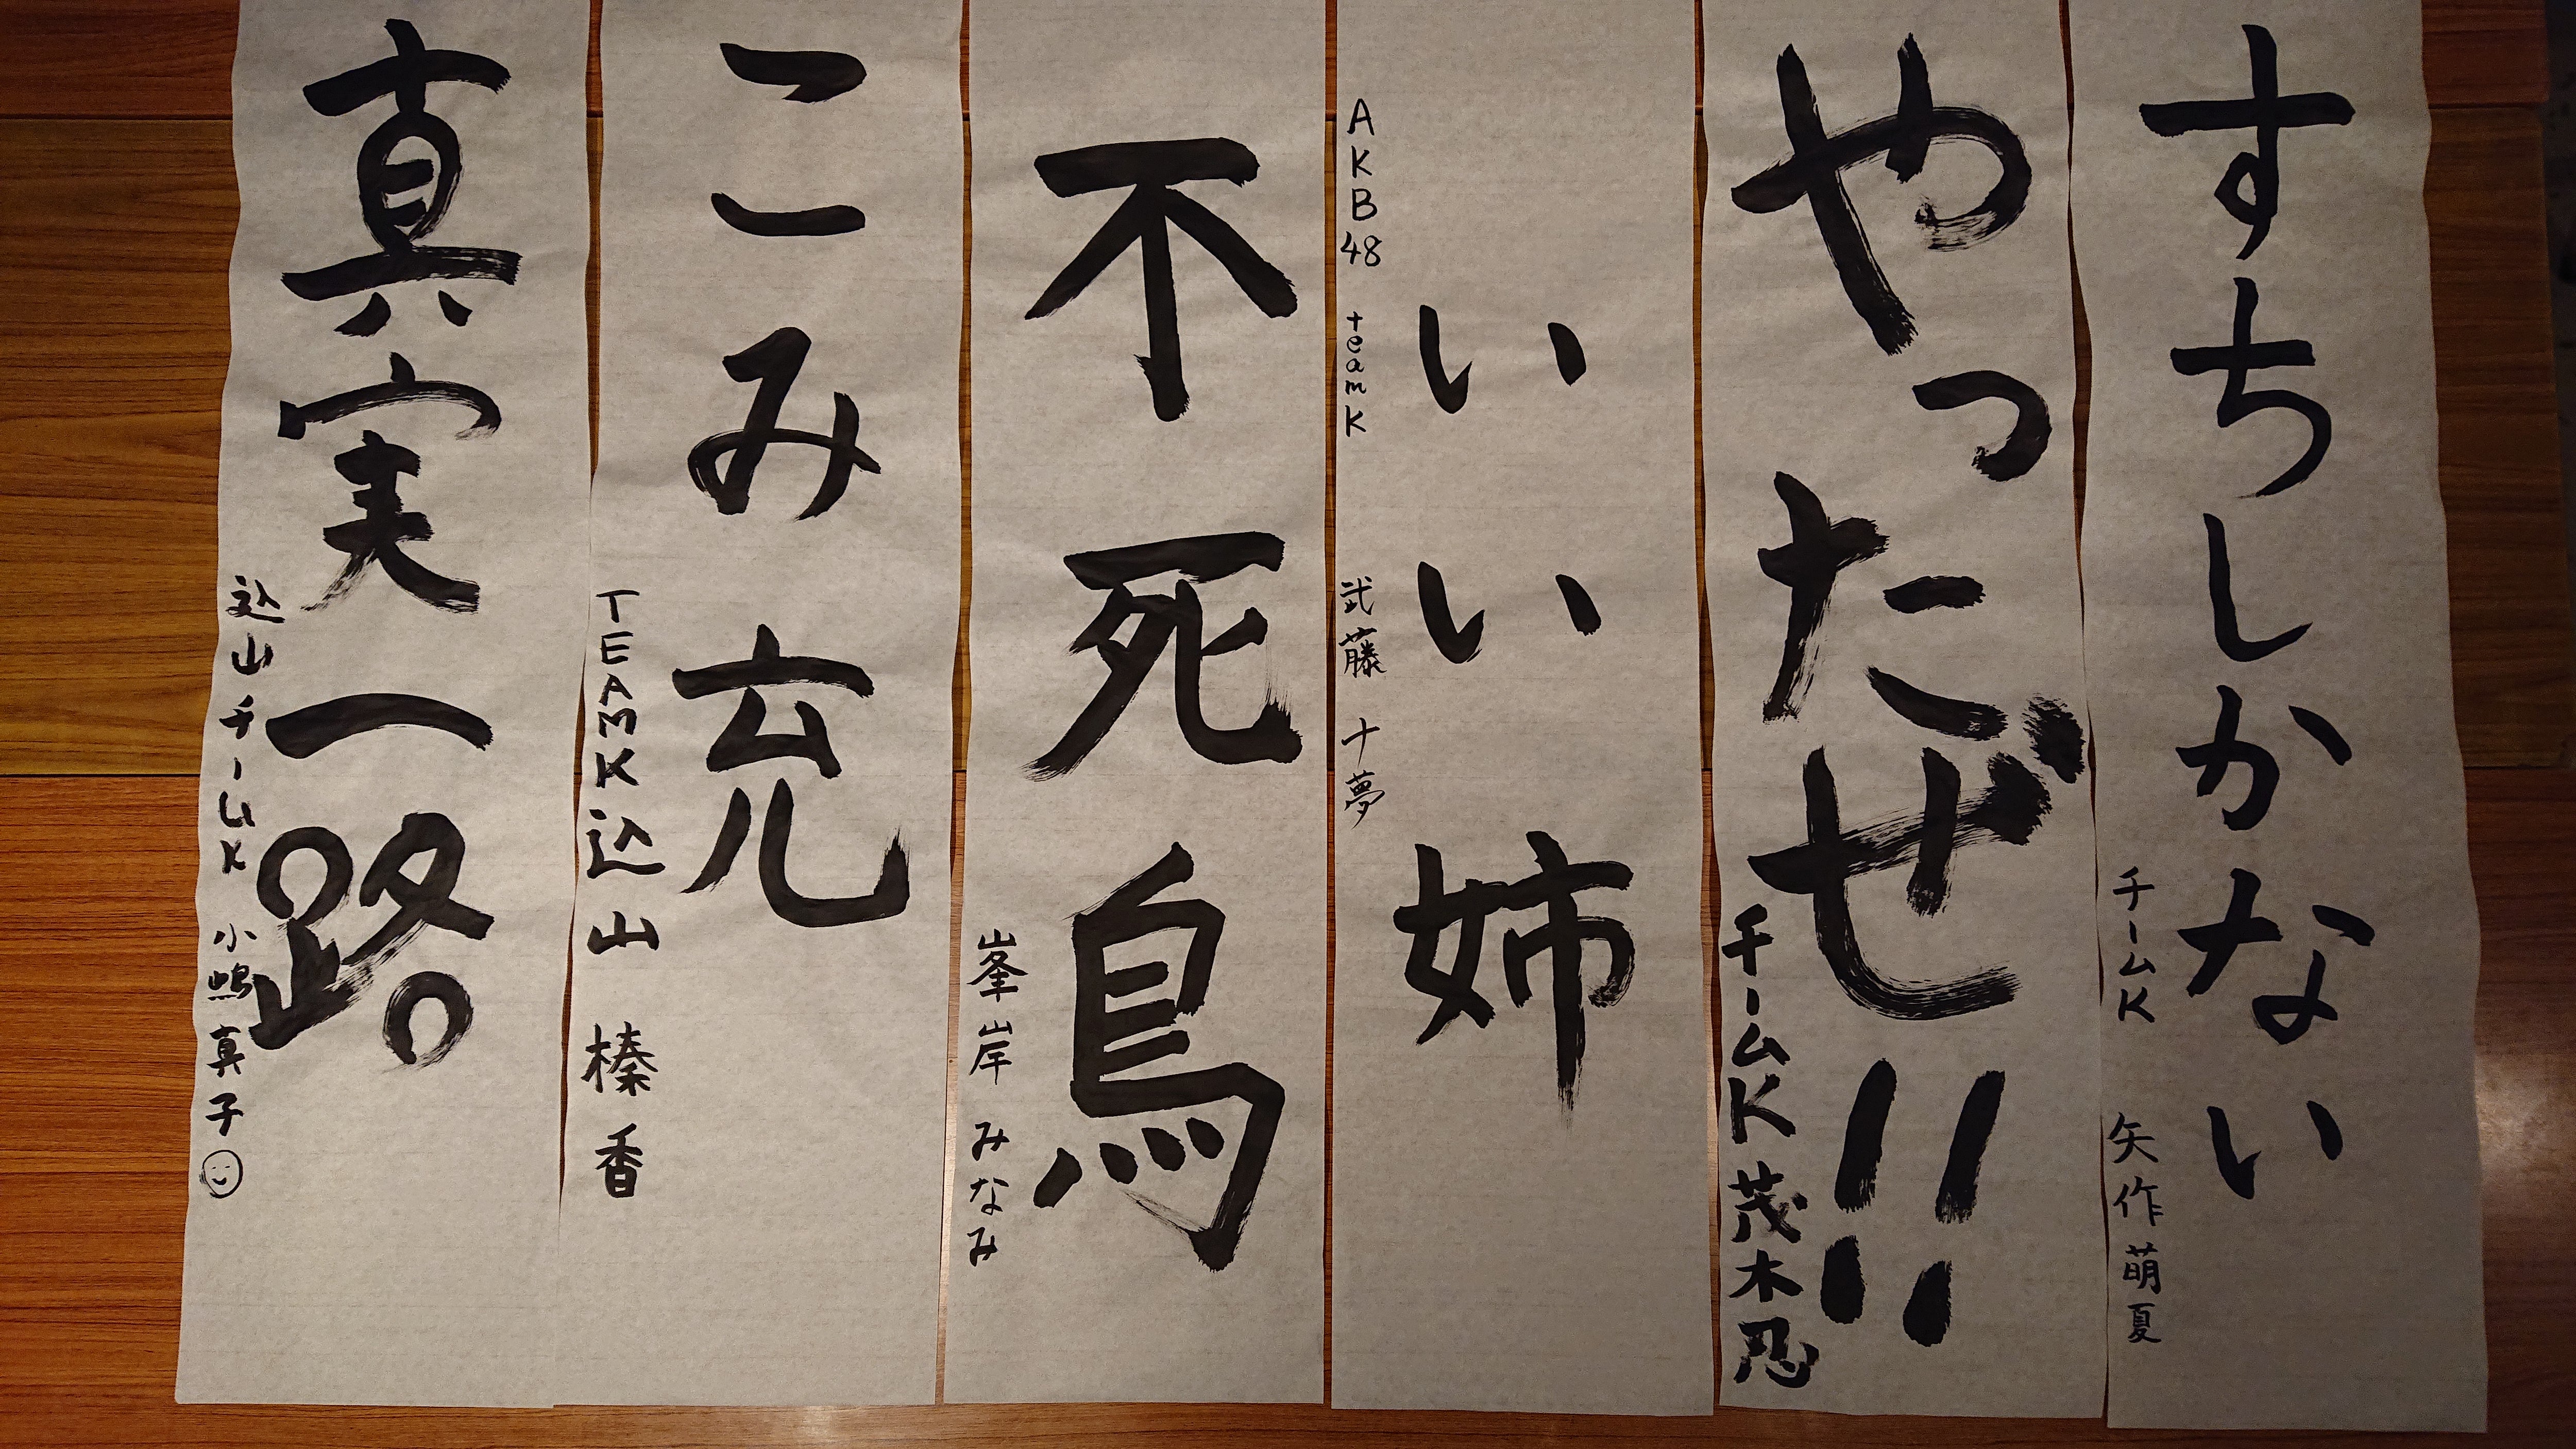 すちしかない
チームK 矢作萌夏
やったぜ!!
チームK 茂木忍
いい姉
AKB48 teamK 武藤 十夢
不死鳥
峯岸 みなみ
こみ充
TEAMK 込山 榛香
真実一路
込山チームK 小嶋真子